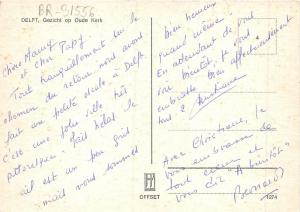 BR-S1556
DELFT, Gezicht op Oude Kerk
Chère Mamy
et cher Papy
Tout tranquillement sur le
chemin du retour nous avons
fait un petite escale à Delft.
C'est une jolie ville très
pittoresque. Mais hélas le
ciel est un peu gris
mais nous sommes
bien heureux
quand même!
En attendant de vous
voir bientôt, je vous
embrasse bien affectueusement
Christiane
Avec Christiane, je
vous embrasse de
tout coeur et
vous dis "A bientôt"
Bernard
OFFSET
1274